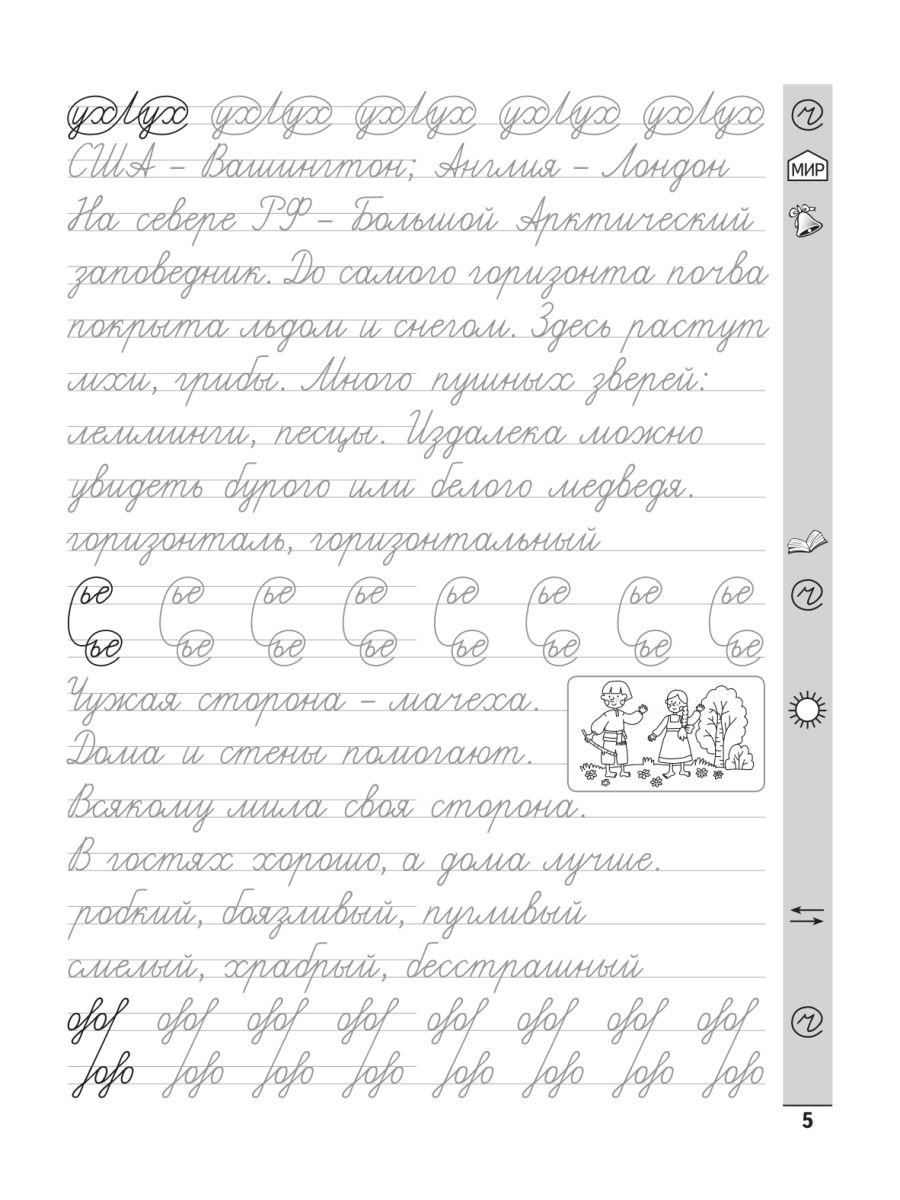 ух ух ух ух ух ух ух ух ух ух
США – Вашингтон; Англия – Лондон
МИР
На севере РФ – Большой Арктический
заповедник. До самого горизонта почва
покрыта льдом и снегом. Здесь растут
мхи, грибы. Много пушных зверей:
лемминги, песцы. Издалека можно
увидеть бурого или белого медведя.
горизонталь, горизонтальный
ье ье ье ье ье ье ье ье
ье ье ье ье ье ье ье ье
Чужая сторона – мачеха.
Дома и стены помогают.
Всякому мила своя сторона.
В гостях хорошо, а дома лучше.
робкий, боязливый, пугливый
смелый, храбрый, бесстрашный
5